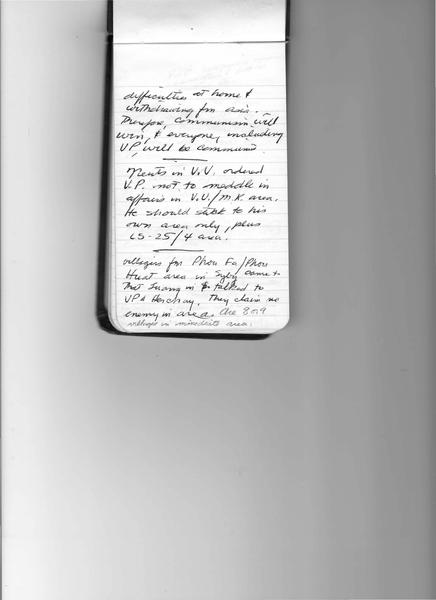 difficulties at home &
withdrawing fm asia.
Therefore Communism will
win, & everyone, including
VP, will be communis
Neuts in V.V. ordered
V.P. not to meddle in
affairs in V.V./M.K. area.
He should stick to his
own area only, plus
LS-25/4 area.
villagers fm Phou Fa/Phou
Huat area in came to
That in & talked to
VP & Her chay. They claim no
enemy in area. Are 8 or 9
villages in area.